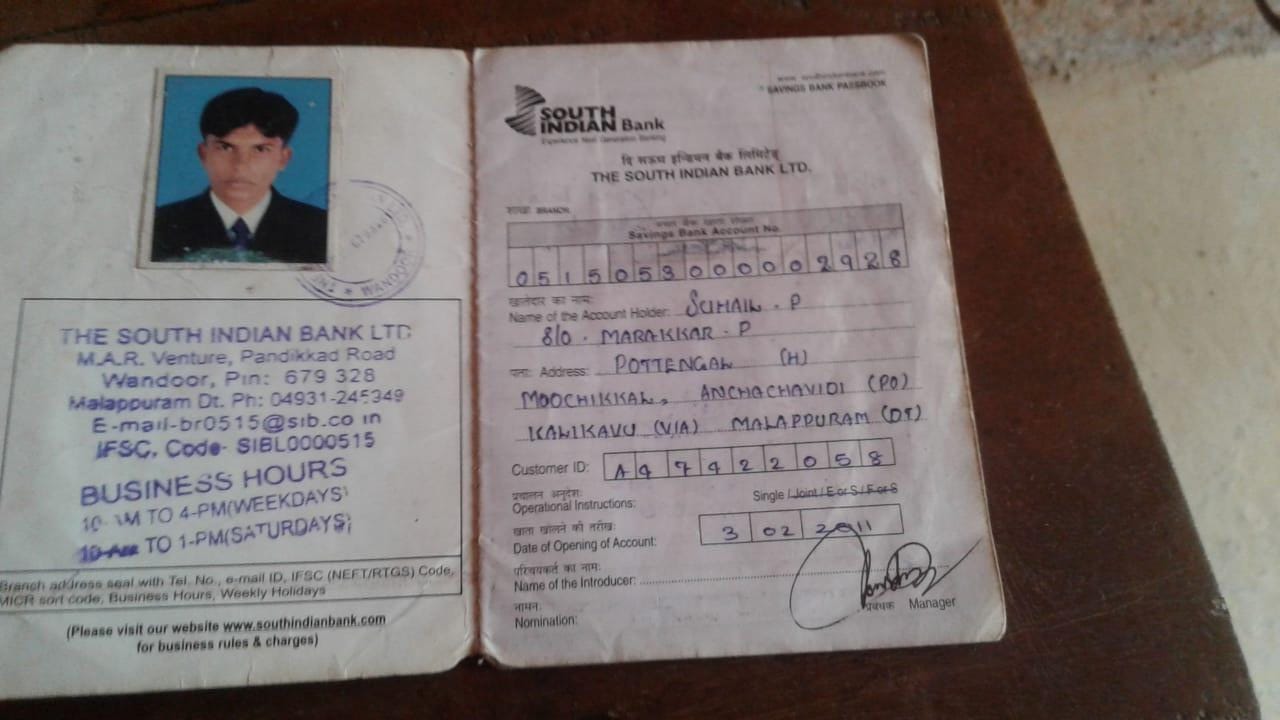 THE SOUTH INDIAN BANK LTD
M.A.R. Venture, Pandikkad Road
Wandoor, Pin: 679 328
Malappuram Dt. Ph: 04931-245349
E-mail-br0515@sib.co in
IFSC, Code- SIBL0000515
BUSINESS HOURS
TO 4-PM(WEEKDAYS)
TO 1-PM(SATURDAYS)
Branch address seal with Tel. No., e-mail ID, IFSC (NEFT/RTGS) Code,
MICR sort code, Business Hours, Weekly Holidays
(Please visit our website www.southindianbank.com
for business rules & charges)
WANDOOR
SAVINGS BANK PASSBOOK
SOUTH
INDIAN Bank
Experience Next Generation Banking
दि साउथ इन्डियन बैंक लिमिटेड्
THE SOUTH INDIAN BANK LTD.
शाखा BRANCH
Savings Bank Account No.
0515053000002928
खातेदार का नाम:
Name of the Account Holder: SUHAIL . P
S/O . MARAKKAR . P
पता: Address: POTTENGAL (H)
MOOCHIKKAL, ANCHACHAVIDI (PO)
KALIKAVU (VIA) MALAPPURAM (DT)
Customer ID: A47422058
प्रचालन अनुदेश:
Operational Instructions: Single / Joint / E or S / F or S
खाता खोलने की तारीख:
Date of Opening of Account: 3 02 2011
परिचयकर्ता का नाम:
Name of the Introducer:
नामन:
Nomination:
प्रबंधक Manager